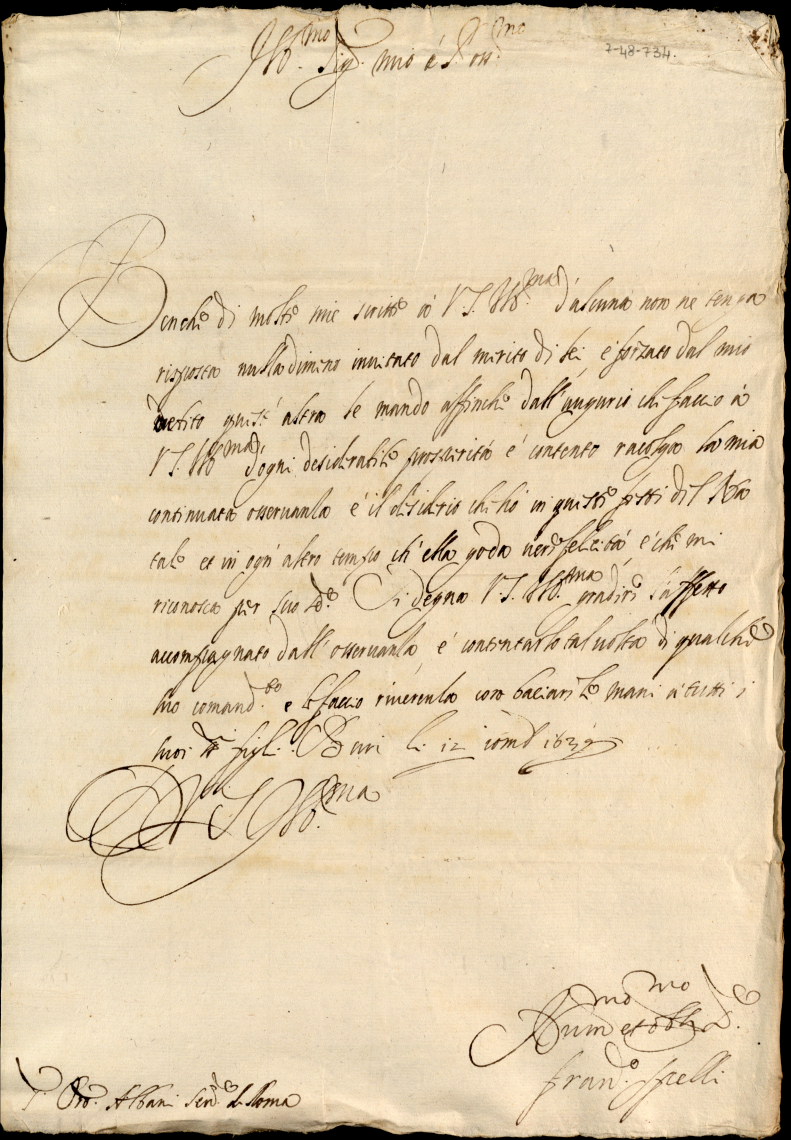 Ill.mo Sig.r mio e P.ron oss.mo
7-48-734.
Benche di molte mie scritte à V.S. Ill.ma d'alcuna non ne tenga
risposta nulladimeno invitato dal merito di lei e forzato dal mio
quest' altra le mando affinche dall'augurio che faccio à
V.S. Ill.ma d'ogni desiderabile prosperità e contento racolga la mia
continuata osservanza e il desiderio che hò in queste feste del Na
tale et in ogn' altro tempo ch' ella goda vere felicità e che mi
riconosca per suo Si degna V.S. Ill.ma gradire l'affetto
accompagnato dall' osservanza e contentarlo tal volta di qualche
suo comand.to e le faccio riverenza con baciar le mani à tutti i
suoi figli. li 12
D V.S. Ill.ma
Hum.mo et obl.mo
Fran.o Spelli
S. Albani Sen.re di Roma